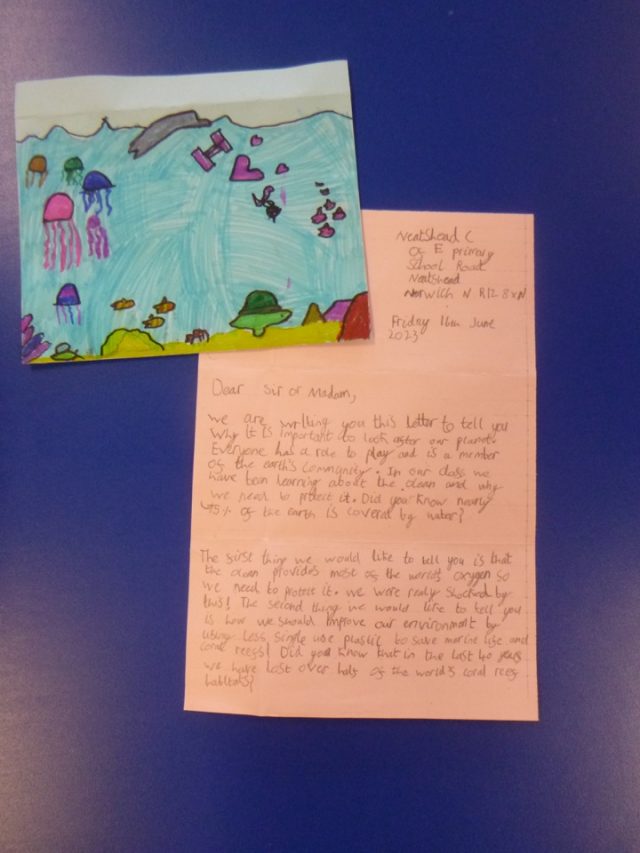 Neatshead C
Of E primary
School Road
Neatshead
Norwich N R12 8XN
Friday 16th June
2023
Dear Sir or Madam,
we are writing you this letter to tell you
Why it is important to look after our planet.
Everyone has a role to play and is a member
of the earth's community. In our class we
have been learning about the ocean and why
we need to protect it. Did you know nearly
75% of the earth is covered by water?
The first thing we would like to tell you is that
the ocean provides most of the world's oxygen so
we need to protect it. we were really shocked by
this! The second thing we would like to tell you
is how we should improve our environment by
using less single use plastic to save marine life and
coral reefs! Did you know that in the last 40 years
we have lost over half of the world's coral reef
habitats?